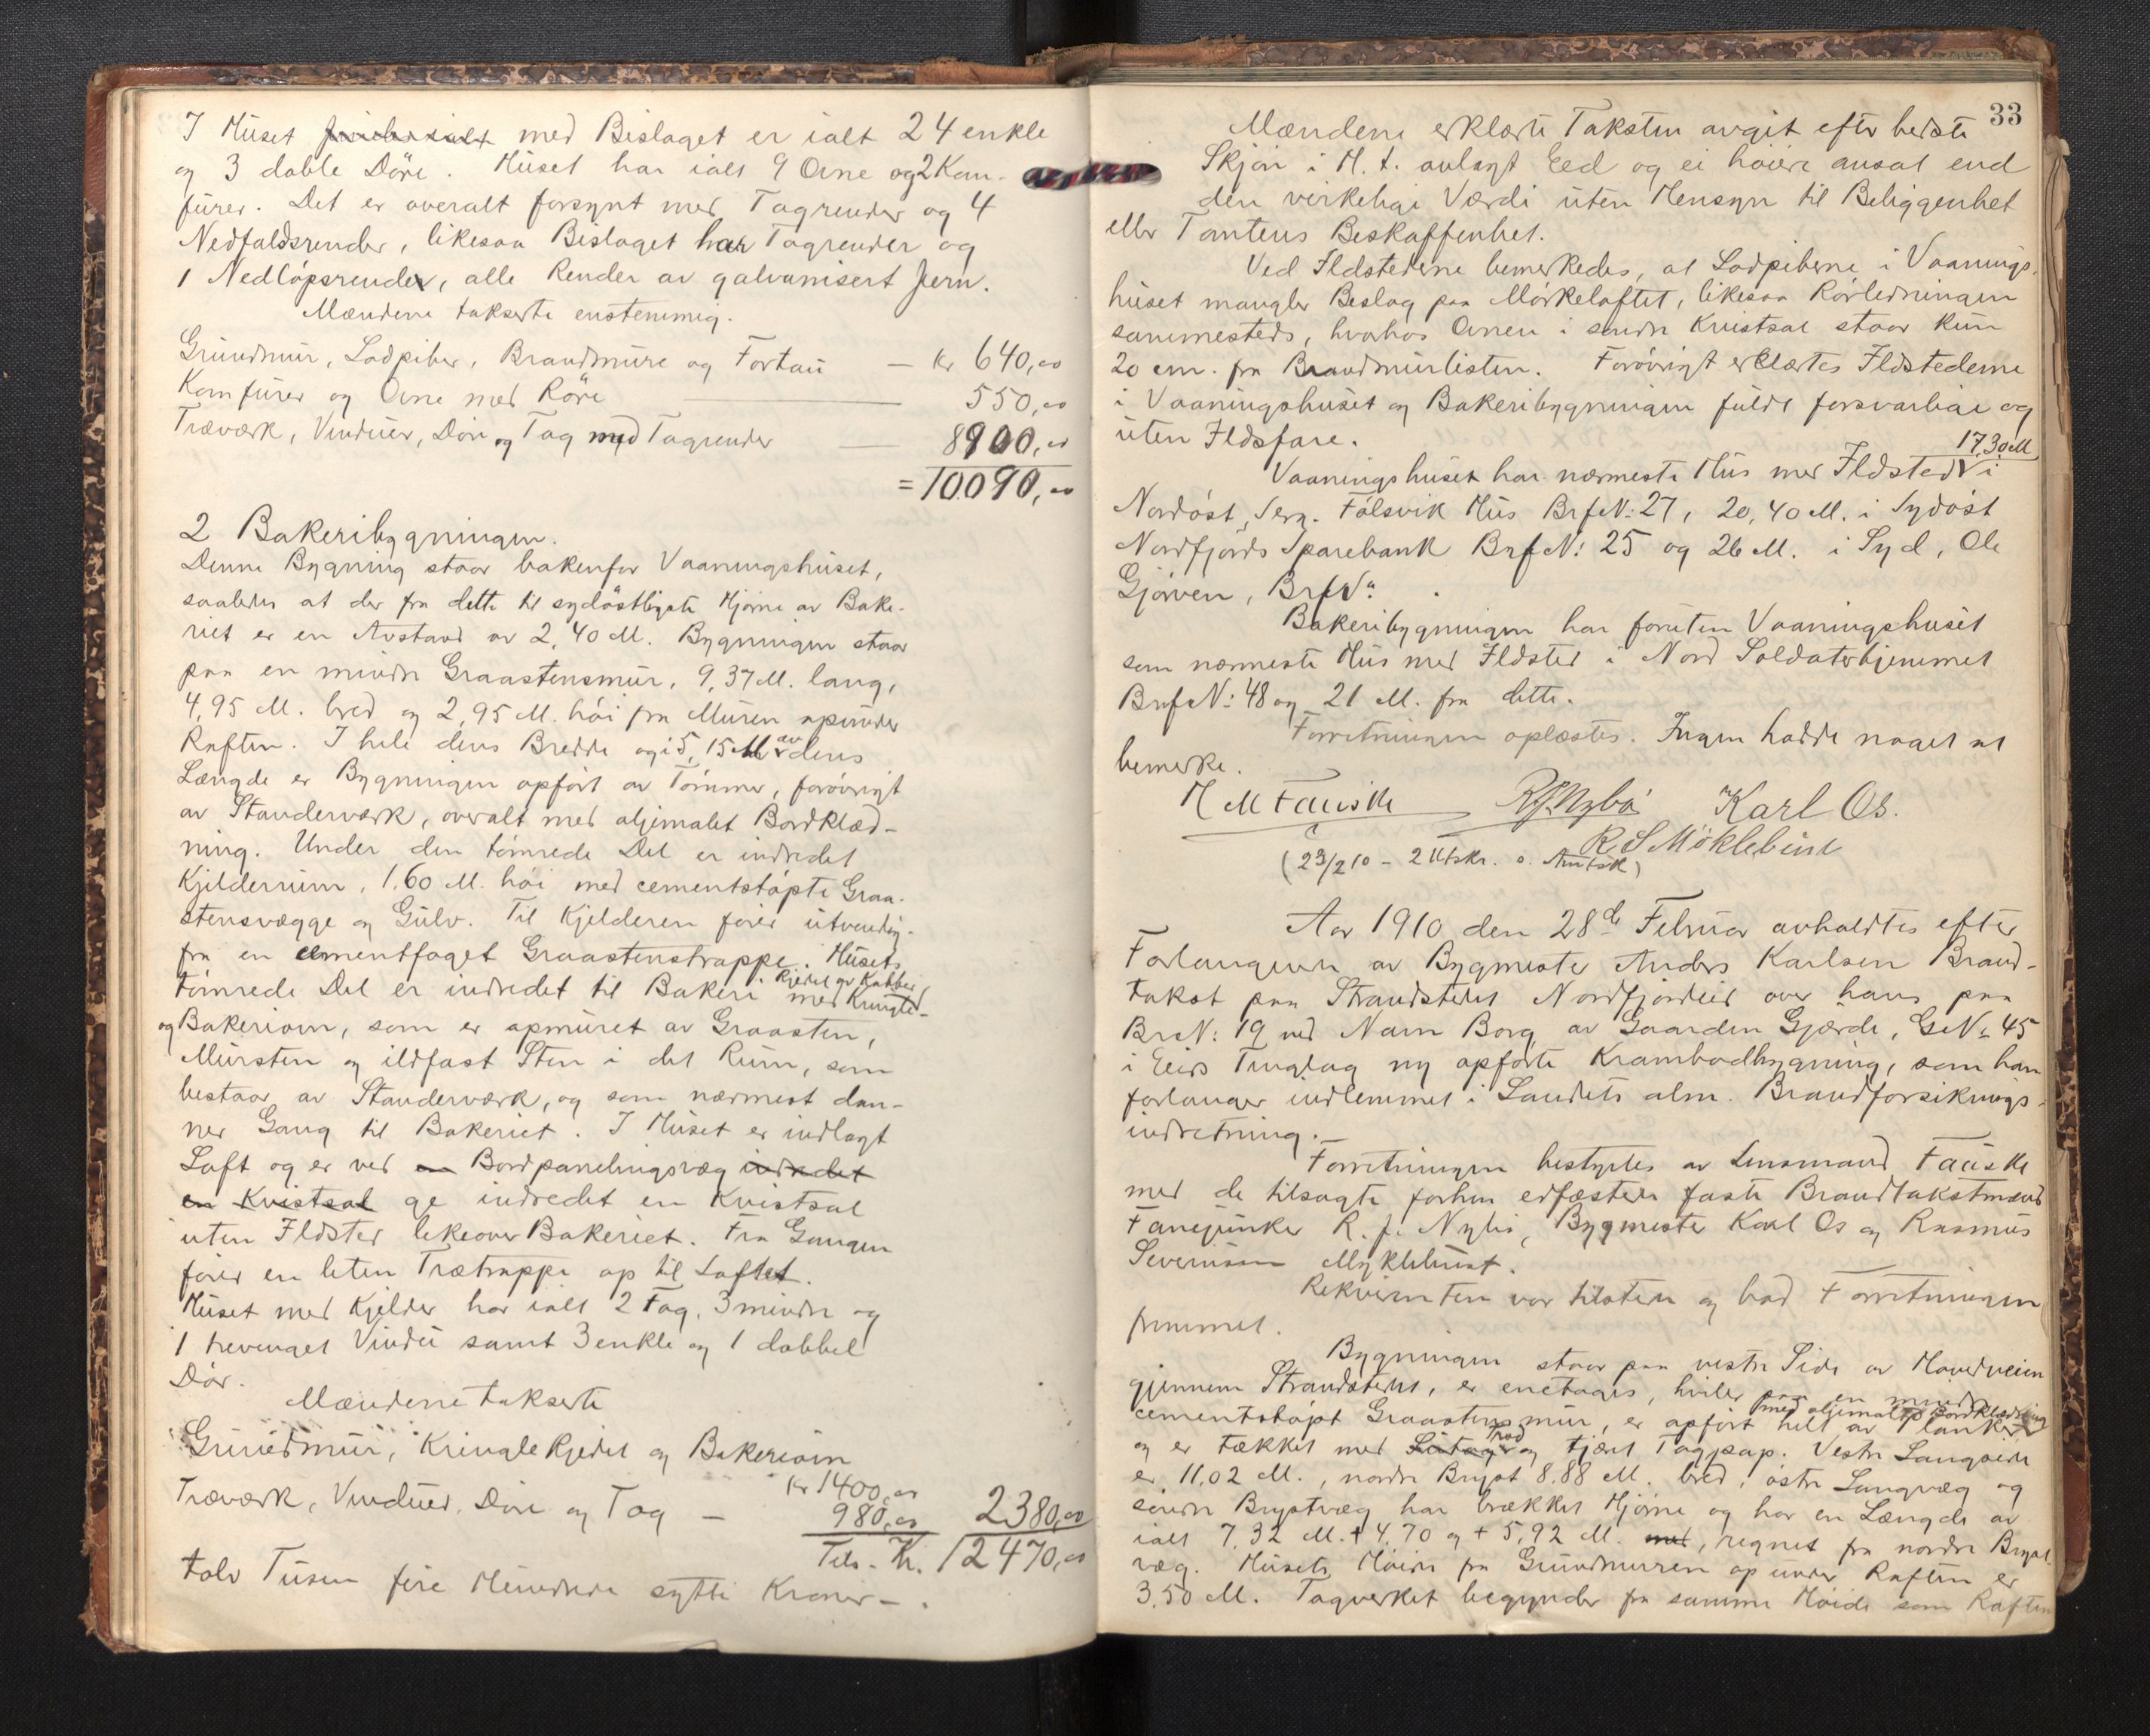 I Huset med Bislaget er ialt 24 enkle
og 3 doble Döre. Huset har ialt 9 Ovne og 2 Kom-
fürer. Det er overalt forsynt med Tagrender og 4
Nedfaldsrender, likesaa Bislaget har Tagrender og
1 Nedlöpsrende, alle Render av galvanisert Jern.
Mændene takserte enstemmig.
Grundmür, Ladpiber, Brandmüre og Fortau — Kr 640,00
Komfürer og Ovne med Röre 550,00
Træværk, Vinduer, Döre og Tag med Tagrender — 8900,00
= 10090,00
2 Bakeribygningen.
Denne Bygning staar bakenfor Vaaningshüset,
saaledes at der fra dette til sydöstligste Hjörne av Bake-
riet er en Avstand av 2,40 M. Bygningen staar
paa en mindre Graastensmür, 9,37 M. lang,
4,95 M. bred og 2,95 M. höi fra Müren op under
Raften. I hele dens Bredde og i 5,15 M av dens
Længde er Bygningen opfört av Tömmer, forövrigt
av Standerværk, overalt med oljemalet Bordklæd-
ning. Under den tömrede Del er indredet
Kjelderrum, 1,60 M. höi med cementstöpte Graa-
stensvægge og Gülv. Til Kjelderen förer utvendig-
fra en cementfuget Graastenstrappe. Husets
tömrede Del er indredet til Bakeri med Kringle-
Kjedel av Kobber
og Bakeriovn, som er opmüret av Graasten,
Mürsten og ildfast Sten i det Rum, som
bestaar av Standerværk, og som nærmest dan-
ner Gang til Bakeriet. I Hüset er indlagt
Loft og er ved en Bordpanelingsvæg indredet
en Kvistsal indredet en Kvistsal
uten Ildsted likeover Bakeriet. Fra Gangen
förer en liten Trætrappe op til Loftet.
Hüset med Kjelder har ialt 2 Fag, 3 mindre og
1 trevenget Vindü samt 3 enkle og 1 dobbel
Dör.
Mændene takserte
Grundmür, Kringlekjedel og Bakeriovn
Kr 1400,00
Træværk, Vinduer, Döre og Tag — 980,00 2380,00
Tils. Kr. 12470,00
tolv Tüsen fire Hundrede sytti Kroner —.
33
Mændene erklærte Taksten avgit efter bedste
Skjön i H. t. avlagt Eed og ei höiere ansat end
den virkelige Værdi uten Hensyn til Beliggenhet
eller Tomtens Beskaffenhet.
Ved Ildstederne bemerkedes, at Ladpiberne i Vaanings-
hüset mangler Beslag paa Mörkeloftet, likesaa Rörledningen
sammesteds, hvorhos Ovnen i söndre Kvistsal staar kun
20 cm. fra Brandmürlisten. Forövrigt erklærtes Ildstederne
i Vaaningshüset og Bakeribygningen füldt forsvarlige og
uten Ildsfare.
17,30 M
Vaaningshüset har nærmeste Hüs med Ildsted i
Nordöst, Serg. Fölsvik Hüs BrfNo: 27, 20,40 M. i Sydöst
Nordfjords Sparebank BrfNo: 25 og 26 M. i Syd, Ole
Gjörven, BrfNo:
Bakeribygningen har foruten Vaaningshüset
som nærmeste Hüs med Ildsted i Nord Soldaterhjemmet
BrfNo: 48 og 21 M. fra dette.
Forretningen oplæstes. Ingen hadde noget at
bemerke.
H M Fauske R.J. Nybö Karl Os.
R S Möklebüst
(23/2 10 – 2 Utskr. o. Amtsk)
Aar 1910 den 28de Februar avholdtes efter
Forlangende av Bygmester Anders Karlsen Brand-
takst paa Strandstedet Nordfjordeid over hans paa
BrNo: 19 ved Navn Borg av Gaarden Gjærde, GNo 45
i Eids Tinglag ny opförte Krambodbygning, som han
forlanger indlemmet i Landets alm. Brandforsikrings-
indretning.
Forretningen bestyrtes av Lensmand Faüske
med de tilsagte forhen edfæstede faste Brandtakstmænd
Fanejünker R. J. Nybö, Bygmester Karl Os og Rasmus
Severinsen Myklebüst.
Rekvirenten var tilstede og bad Forretningen
fremmet.
Bygningen staar paa vestre Side av Hovedveien
gjennem Strandstedet, er enetages, hviler paa en mindre
cementstöpt Graastensmür, er opfört helt av Planker
med oljemalt Bordklædning
og er tækket med og tjæret Tagpap. Vestre Langside
er 11,02 M., nordre Bryst 8.88 M. bred, östre Langvæg og
söndre Brystvæg har brækket Hjörne og har en Længde av
ialt 7,32 M. + 4,70 og + 5,92 M. med, regnet fra nordre Bryst-
væg. Husets Höide fra Gründmuren op ünder Raften er
3,50 M. Tagverket begynder fra samme Höide som Raften